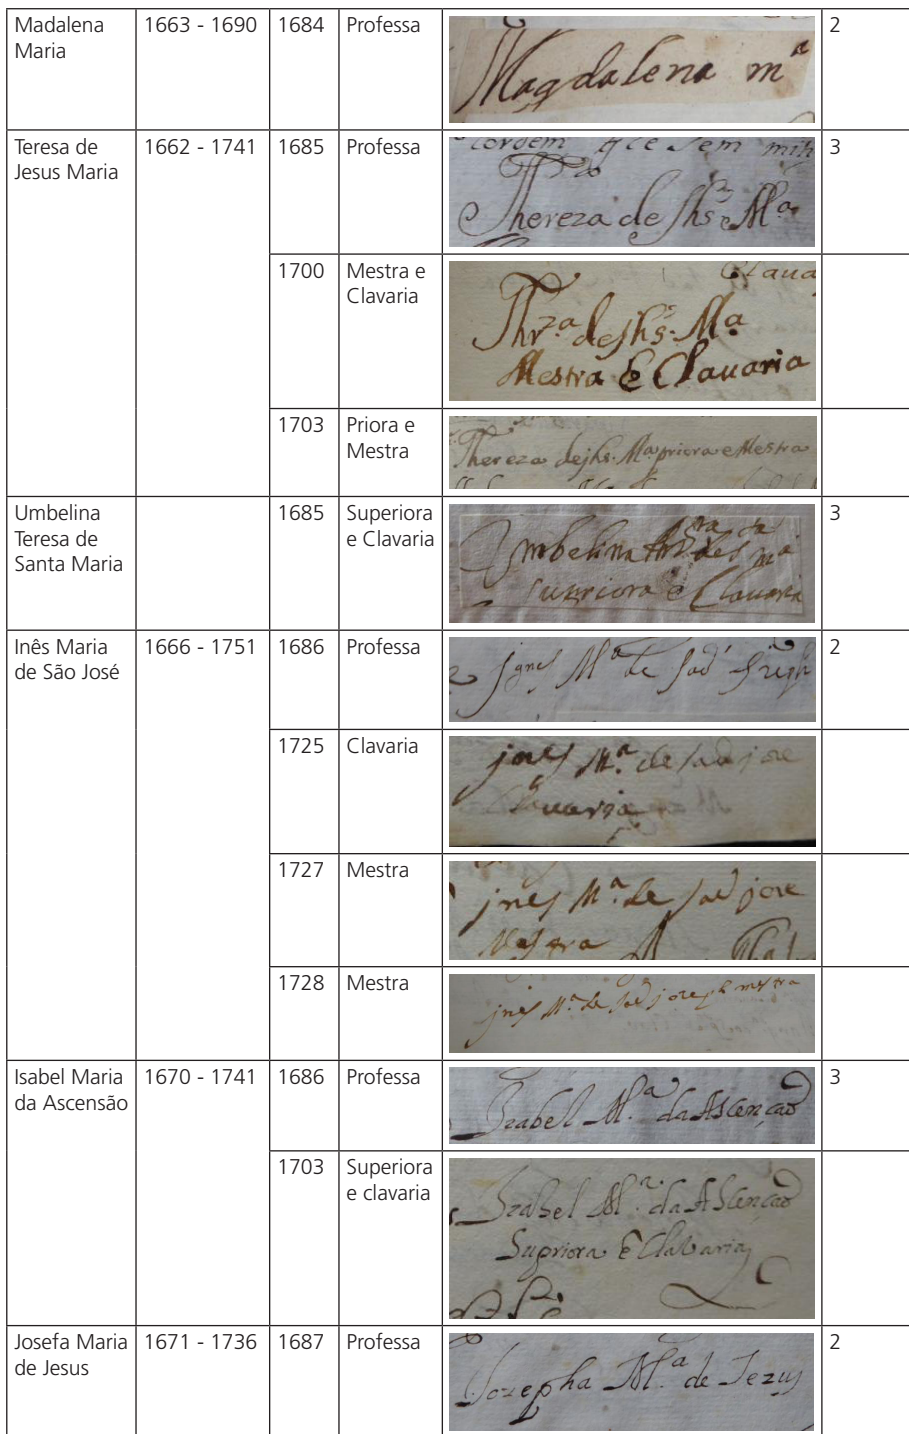 Madalena Maria
1663 - 1690
1684
Professa
Magdalena mª
2
Teresa de Jesus Maria
1662 - 1741
1685
Professa
Thereza de Jhs Mª
3
1700
Mestra e Clavaria
Claua
Thrza de jhs. Mª
Mestra E Clauaria
1703
Priora e Mestra
Thereza de jhs. Mª priora e Mestra
Umbelina Teresa de Santa Maria
1685
Superiora e Clavaria
Umbelina
Supriora e Clauaria
3
Inês Maria de São José
1666 - 1751
1686
Professa
Ignes Mª de Saõ
2
1725
Clavaria
jnes Mª de saõ jose
Clauaria
1727
Mestra
jnes Mª de saõ jose
Mestra
1728
Mestra
jnes Mª de saõ joseph mestra
Isabel Maria da Ascensão
1670 - 1741
1686
Professa
Izabel Mª da Ascençaõ
3
1703
Superiora e clavaria
Izabel Mª da Ascençaõ
Supriora E Clavaria
Josefa Maria de Jesus
1671 - 1736
1687
Professa
Jozepha Mª de Jezus
2